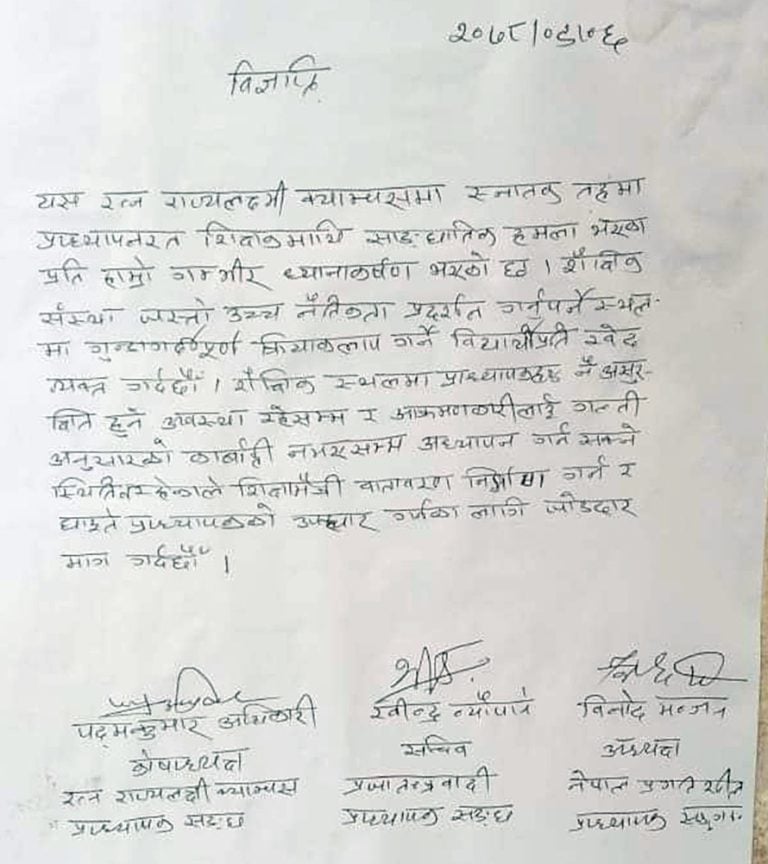 २०७८/०९/०६
विज्ञप्ति
यस रत्न राज्यलक्ष्मी क्याम्पसमा स्नातक तहमा
प्राध्यापनरत शिक्षकमाथि साङ्घातिक हमला भएको
प्रति हाम्रो गम्भीर ध्यानाकर्षण भएको छ । शैक्षिक
संस्था जस्तो उच्च नैतिकता प्रदर्शन गर्नुपर्ने स्थल-
मा गुन्डागर्दीपूर्ण क्रियाकलाप गर्ने विद्यार्थीप्रति खेद
व्यक्त गर्दछौं । शैक्षिक स्थलमा प्राध्यापकहरु नै असुर-
क्षित हुने अवस्था रहेसम्म र आक्रमणकारीलाई गल्ती
अनुसारको कार्बाही नभएसम्म अध्यापन गर्न सक्ने
स्थिति नरहेकाले शिक्षामैत्री वातावरण निर्माण गर्न र
घाइते प्राध्यापकको उपचार गर्नका लागि जोडदार
माग गर्दछौं ।
पद्मकुमार अधिकारी रवीन्द्र न्यौपाने विनोद
कोषाध्यक्ष सचिव अध्यक्ष
रत्न राज्यलक्ष्मी क्याम्पस प्रजातन्त्रवादी नेपाल प्रगतिशील
प्राध्यापक सङ्घ प्राध्यापक सङ्घ प्राध्यापक